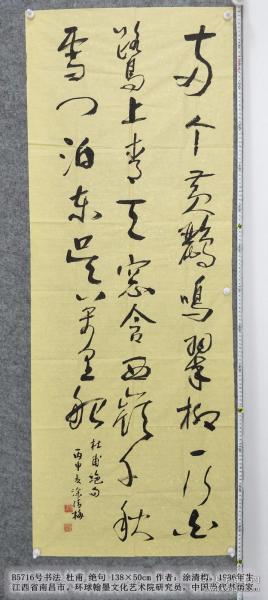 两个黄鹂鸣翠柳一行白
鹭上青天窗含西岭千秋
雪门泊东吴万里船
杜甫绝句
丙申夏涂清梅
B5716号书法 杜甫 绝句 138×50cm 作者：涂清梅，1936年生
江西省南昌市。环球翰墨文化艺术院研究员、中国当代书画家、